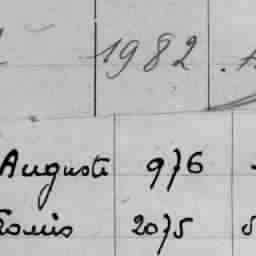 1982
Auguste 976
Louis 2075